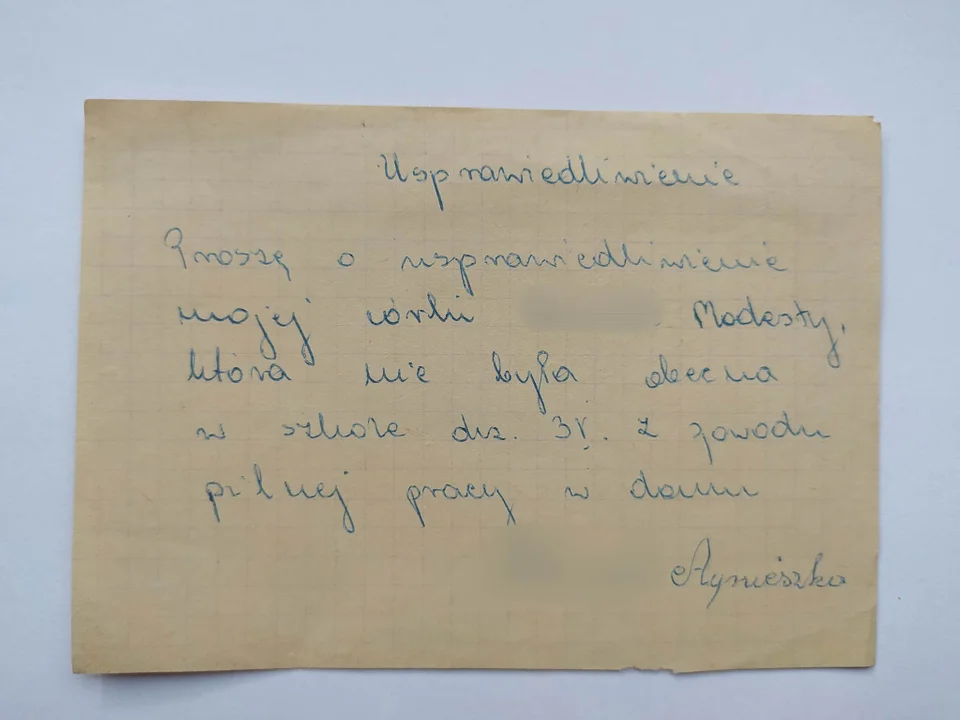 Usprawiedliwienie
Proszę o usprawiedliwienie
mojej córki Modesty,
która nie była obecna
w szkole dn. 3V. z powodu
pilnej pracy w domu
Agnieszka